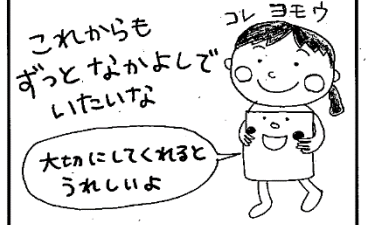 これからも
ずっと なかよしで
いたいな
コレ ヨモウ
大切にしてくれると
うれしいよ